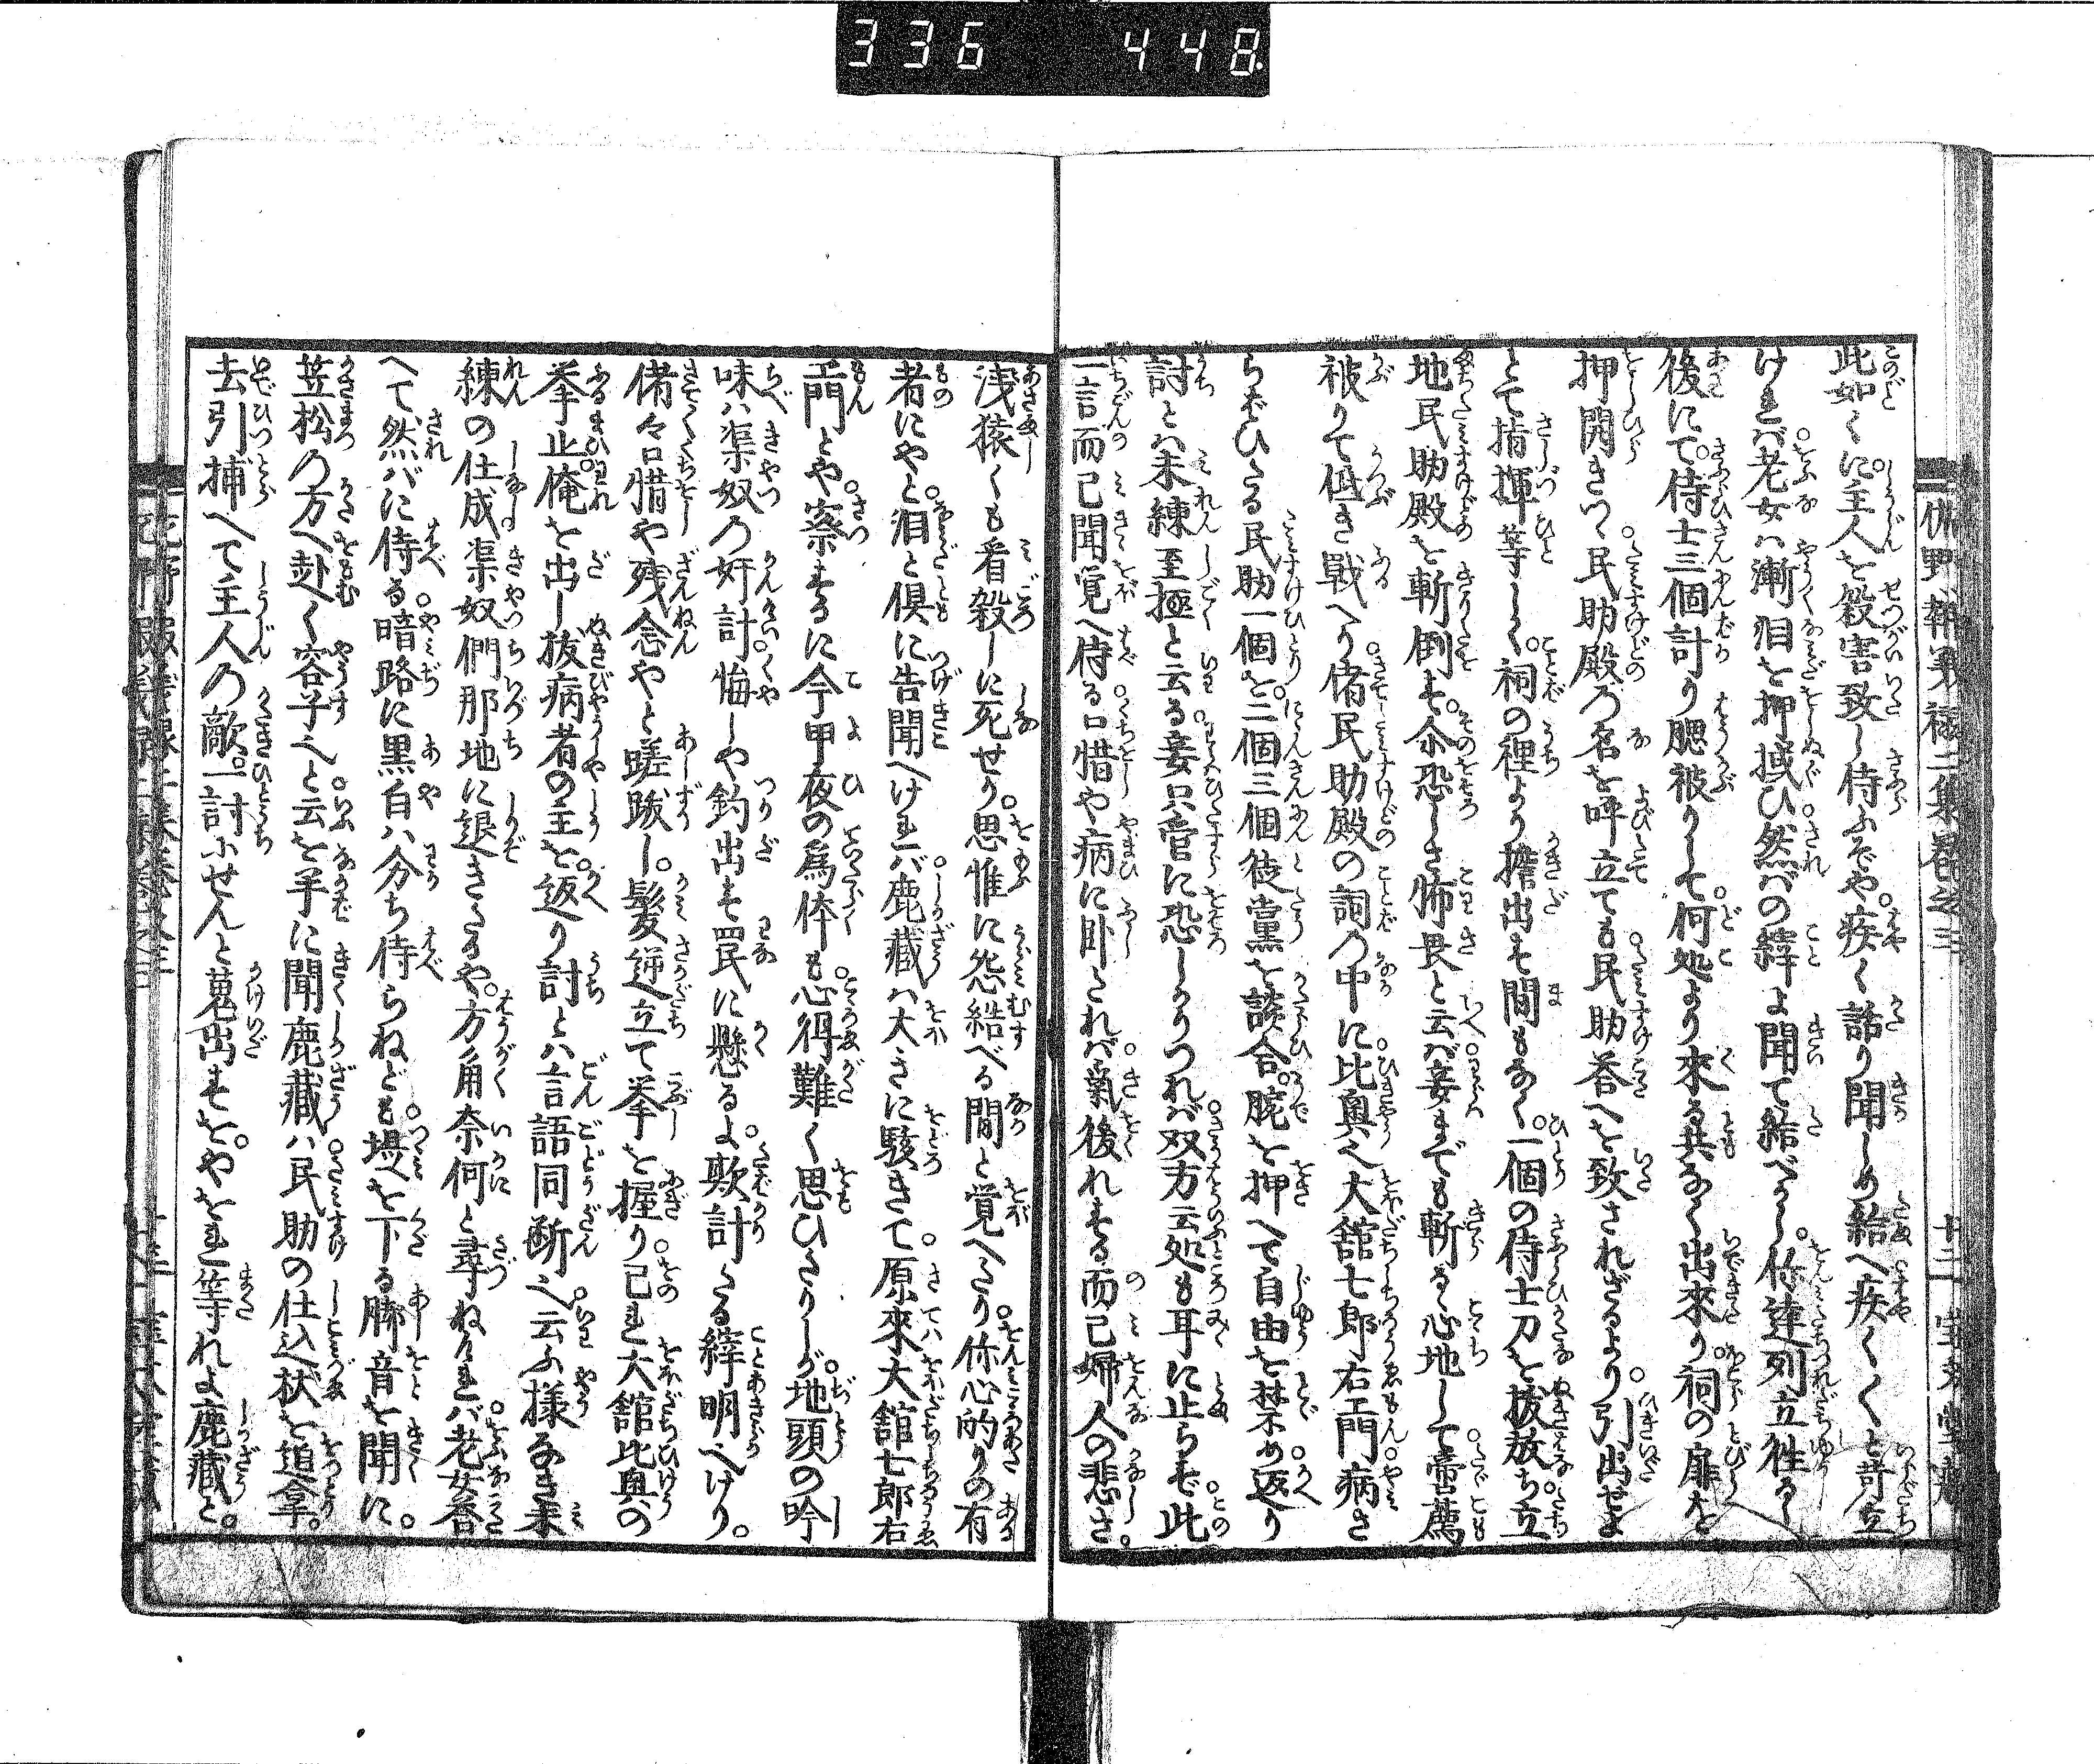 336 448
此如くに。主人を殺害致し侍ふぞや。疾く話り聞しめ給へ疾く〱と苛立
けれバ。老女ハ漸泪を押拭ひ。然バの縡よ聞て給べかし。你達列立往るし
後にて。侍士三個計り腮被りして。何処より來る共なく出來り。祠の扉を
押開きつゝ。民助殿の名を呼立ても。民助荅へを致されざるより。引出せよ
とて指揮等しく。祠の裡より擔出す間もなく。一個の侍士刀を抜放ち。立
地民助殿を斬倒す。余恐しさ怖畏と云バ。妾までも斬るゝ心地して。啻薦
被りて低き戰へり。偖民助殿の詞の中に。比奥へ大舘七郎右エ門。病さ
らぼひたる民助一個を。二個三個徒黨を談合。腕を押へて自由を禁め。返り
討とハ未練至極と云る。妾只管に恐しかりつれバ。双方云処も耳に止らず。此
一言而已聞覚へ侍る。口惜や病に臥たれバ。氣後れする而已婦人の悲さ。
浅猿くも看殺しに死せり。思惟に怨結べる間と覚へたり。你心的りの有
者にやと。泪と倶に告聞へけれバ。鹿藏ハ大きに駭きて。原來大舘七郎右
エ門とや。察するに今甲夜の爲体も。心得難く思ひたりしが。地頭の吟
味ハ渠奴の奸計。悔しや釣出す罠に懸るよ。欺計たる縡明べけり。
偖々口惜や残念やと蹉跋し。髪逆立て拳を握り。己れ大舘比奥の
挙止。俺を出し抜病者の主を。返り討とハ言語同断へ。云ふ様なき未
練の仕成。渠奴們那地に退きたるや。方角奈何と尋ねけれバ。老女荅
へて然バに侍る。暗路に黒白ハ分ち侍らねども。堤を下る脚音を聞に。
笠松の方へ赴く容子へと。云を半に聞鹿藏ハ。民助の仕込杖を追拿。
去引捕へて主人の敵。一討ふせんと蒐出すを。やをれ等れよ鹿藏と。